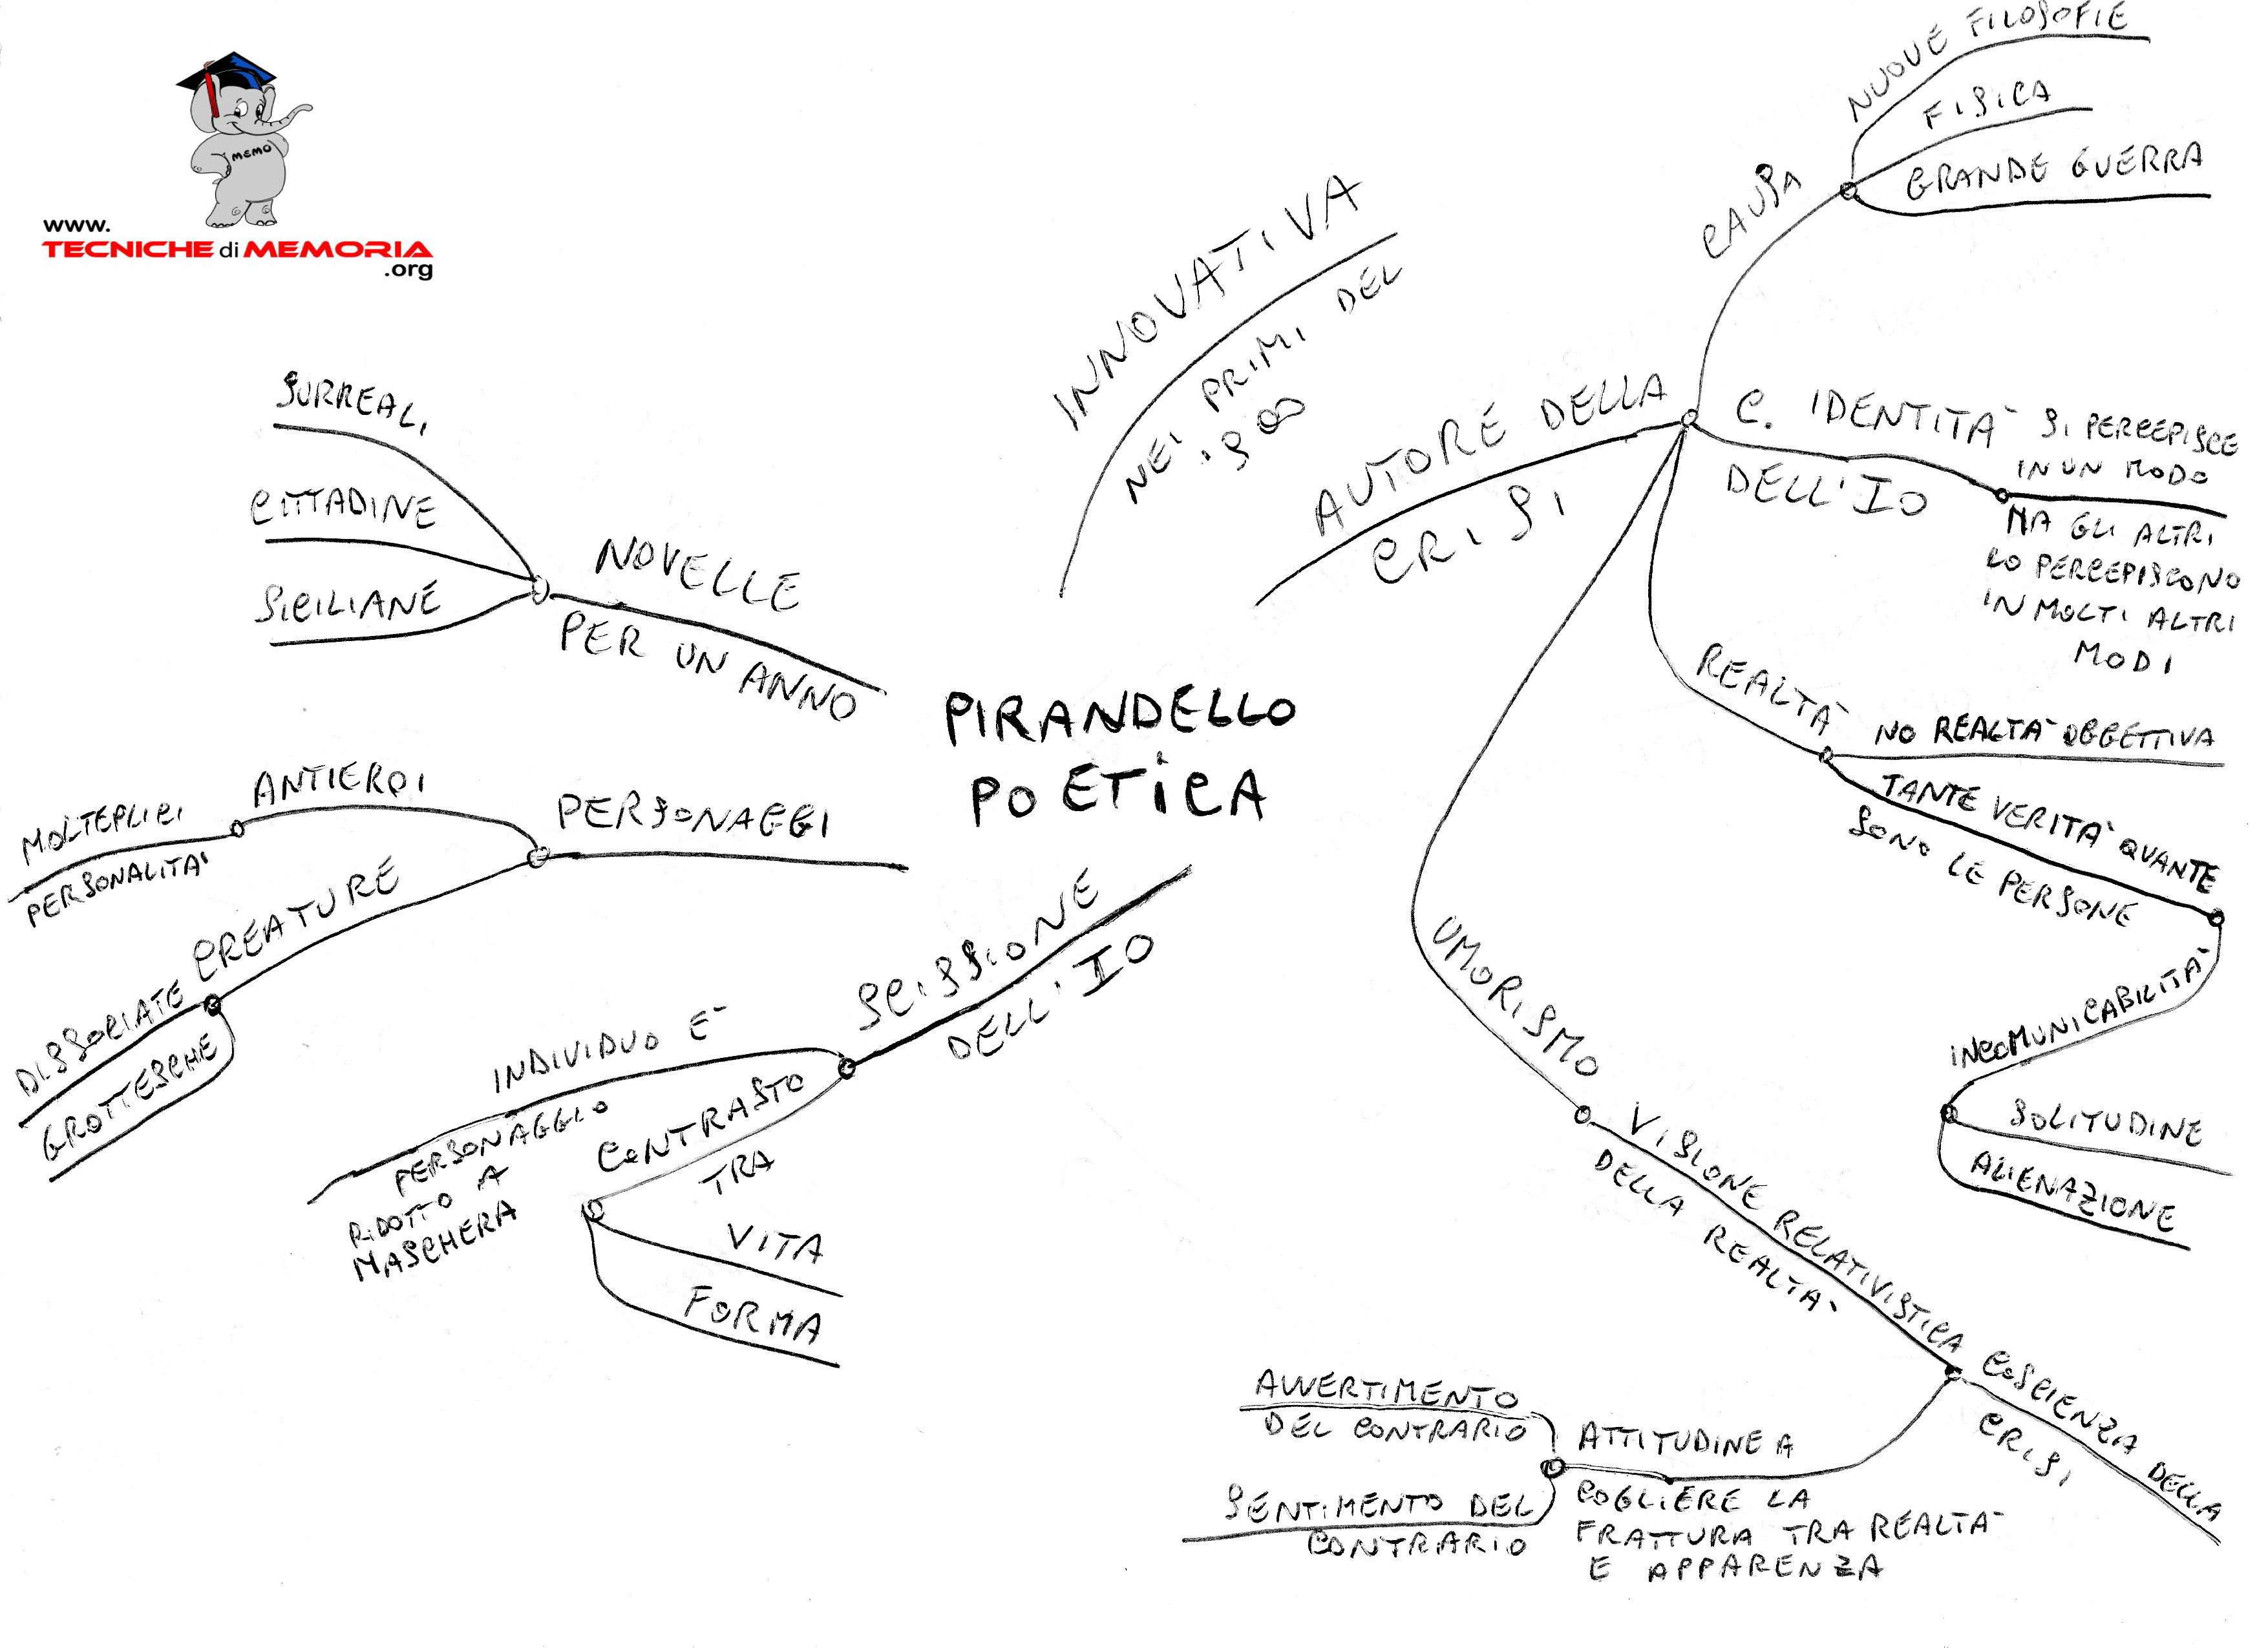 MEMO
www.
TECNICHE di MEMORIA
.org
PIRANDELLO
POETICA
INNOVATIVA
NEI PRIMI DEL
'900
AUTORE DELLA
CRISI
CAUSA
NUOVE FILOSOFIE
FISICA
GRANDE GUERRA
C. IDENTITA'
DELL'IO
SI PERCEPISCE
IN UN MODO
MA GLI ALTRI
LO PERCEPISCONO
IN MOLTI ALTRI
MODI
REALTA'
NO REALTA' OGGETTIVA
TANTE VERITA' QUANTE
SONO LE PERSONE
INCOMUNICABILITA'
SOLITUDINE
ALIENAZIONE
UMORISMO
VISIONE RELATIVISTICA
DELLA REALTA'
COSCIENZA DELLA
CRISI
ATTITUDINE A
COGLIERE LA
FRATTURA TRA REALTA'
E APPARENZA
AVVERTIMENTO
DEL CONTRARIO
SENTIMENTO DEL
CONTRARIO
SCISSIONE
DELL'IO
INDIVIDUO E'
PERSONAGGIO
RIDOTTO A
MASCHERA
CONTRASTO
TRA
VITA
FORMA
PERSONAGGI
ANTIEROI
MOLTEPLICI
PERSONALITA'
CREATURE
DISSOCIATE
GROTTESCHE
NOVELLE
PER UN ANNO
SURREALI
CITTADINE
SICILIANE